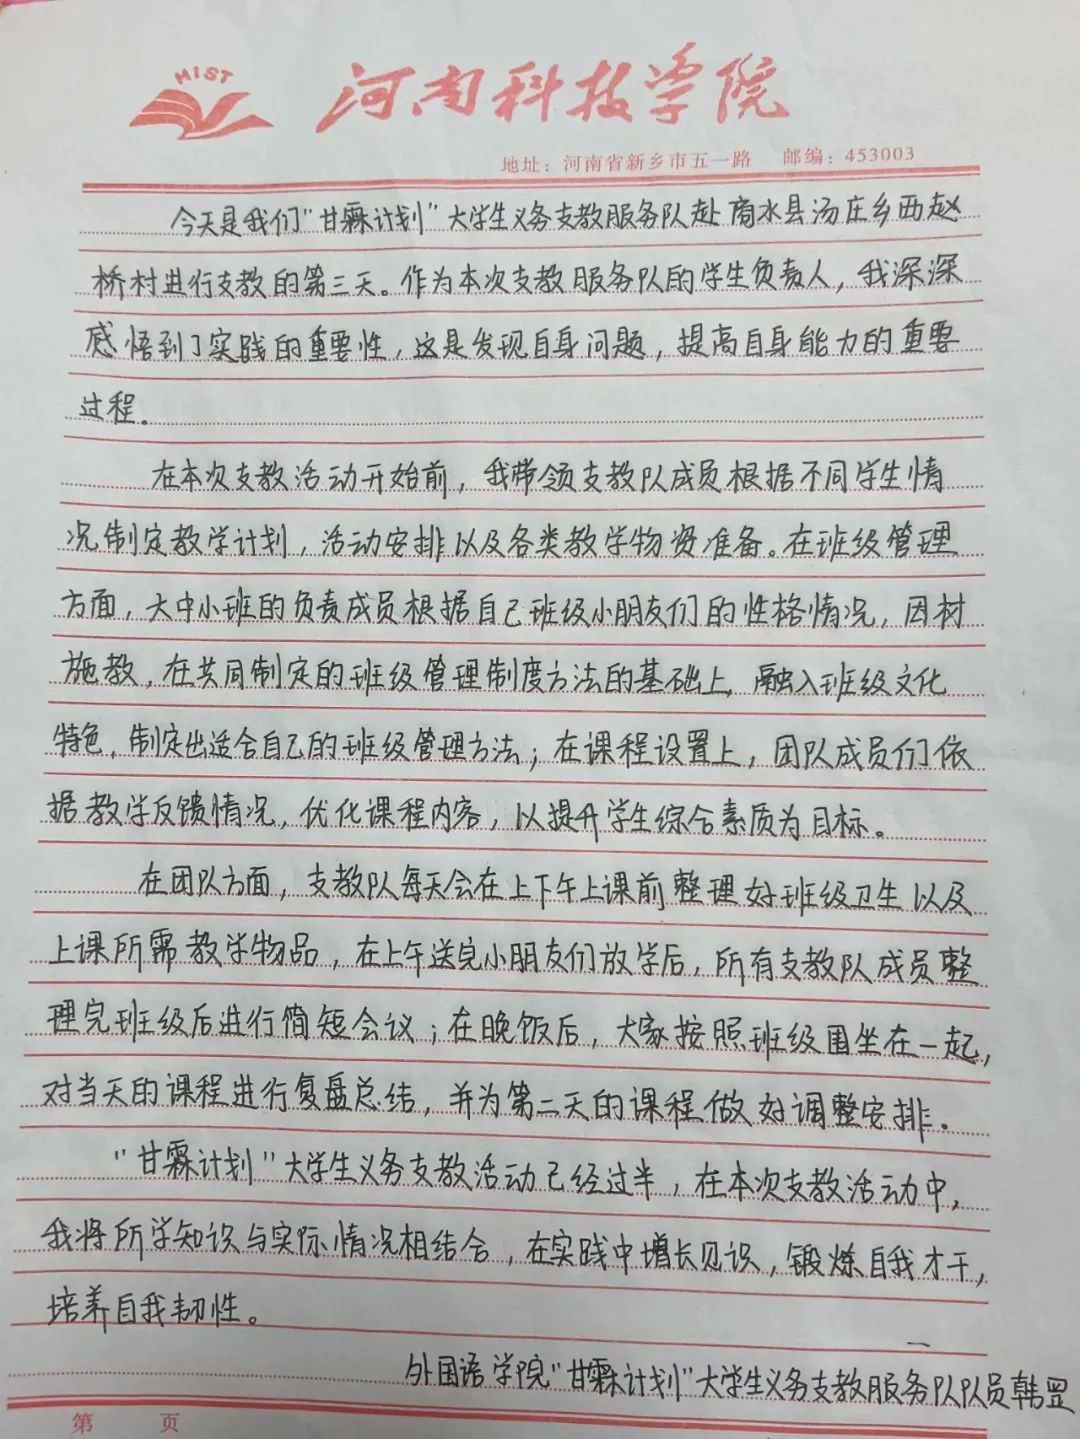 HIST
河南科技学院
地址：河南省新乡市五一路 邮编：453003
今天是我们"甘霖计划"大学生义务支教服务队赴商水县汤庄乡西赵
桥村进行支教的第三天。作为本次支教服务队的学生负责人，我深深
感悟到了实践的重要性，这是发现自身问题，提高自身能力的重要
过程。
在本次支教活动开始前，我带领支教队成员根据不同学生情
况制定教学计划，活动安排以及各类教学物资准备。在班级管理
方面，大中小班的负责成员根据自己班级小朋友们的性格情况，因材
施教，在共同制定的班级管理制度方法的基础上，融入班级文化
特色，制定出适合自己的班级管理方法；在课程设置上，团队成员们依
据教学反馈情况，优化课程内容，以提升学生综合素质为目标。
在团队方面，支教队每天会在上下午上课前整理好班级卫生以及
上课所需教学物品，在上午送完小朋友们放学后，所有支教队成员整
理完班级后进行简短会议；在晚饭后，大家按照班级围坐在一起，
对当天的课程进行复盘总结，并为第二天的课程做好调整安排。
"甘霖计划"大学生义务支教活动已经过半，在本次支教活动中，
我将所学知识与实际情况相结合，在实践中增长见识，锻炼自我才干，
培养自我韧性。
外国语学院"甘霖计划"大学生义务支教服务队队员韩罡
第 页